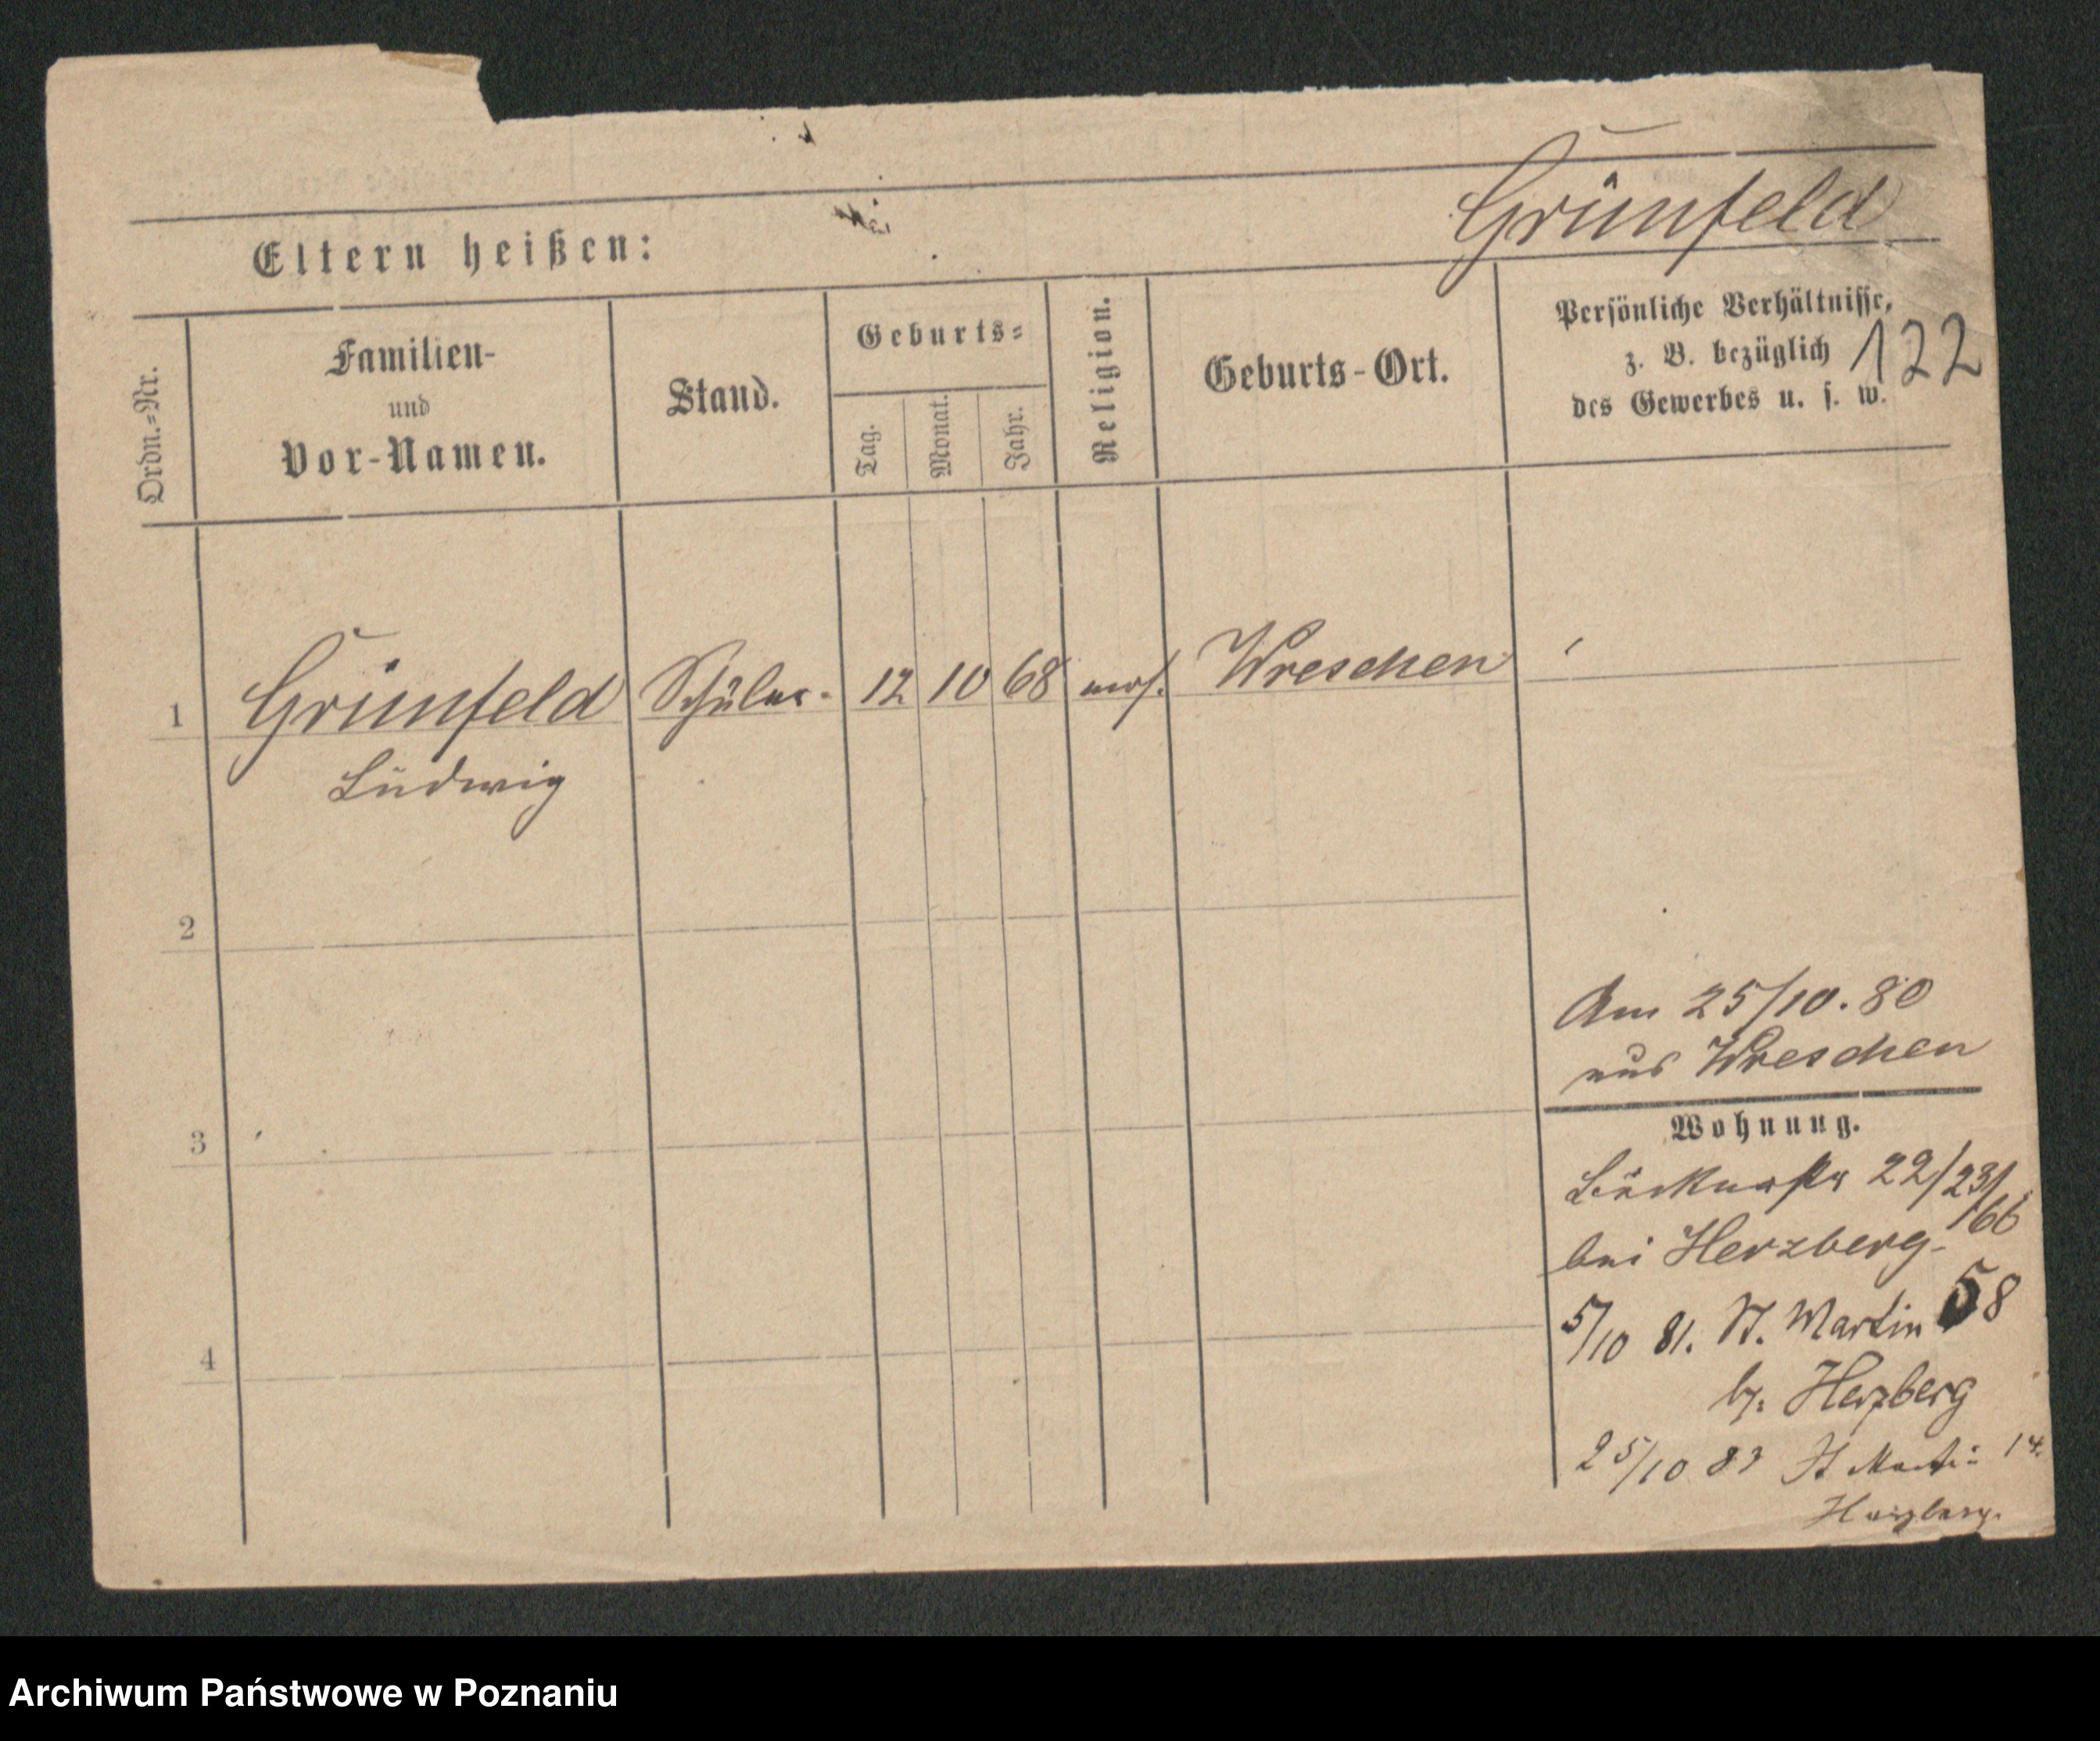 Grünfeld
Eltern heißen:
Ordn.-Nr.
Familien-
und
Vor-Namen.
Stand.
Geburts-
Tag.
Monat.
Jahr.
Religion.
Geburts-Ort.
Persönliche Verhältnisse,
z. B. bezüglich
des Gewerbes u. s. w.
122
1 Grünfeld Schüler 12 10 68 mos. Wreschen
Ludwig
2
3
4
Am 25/10. 80
aus Wreschen
Wohnung.
22/23/
bei Herzberg 166
5/10 81. St. Martin 58
b. Herzberg
25/10 83 St Martin 14.
Herzberg.
Archiwum Państwowe w Poznaniu